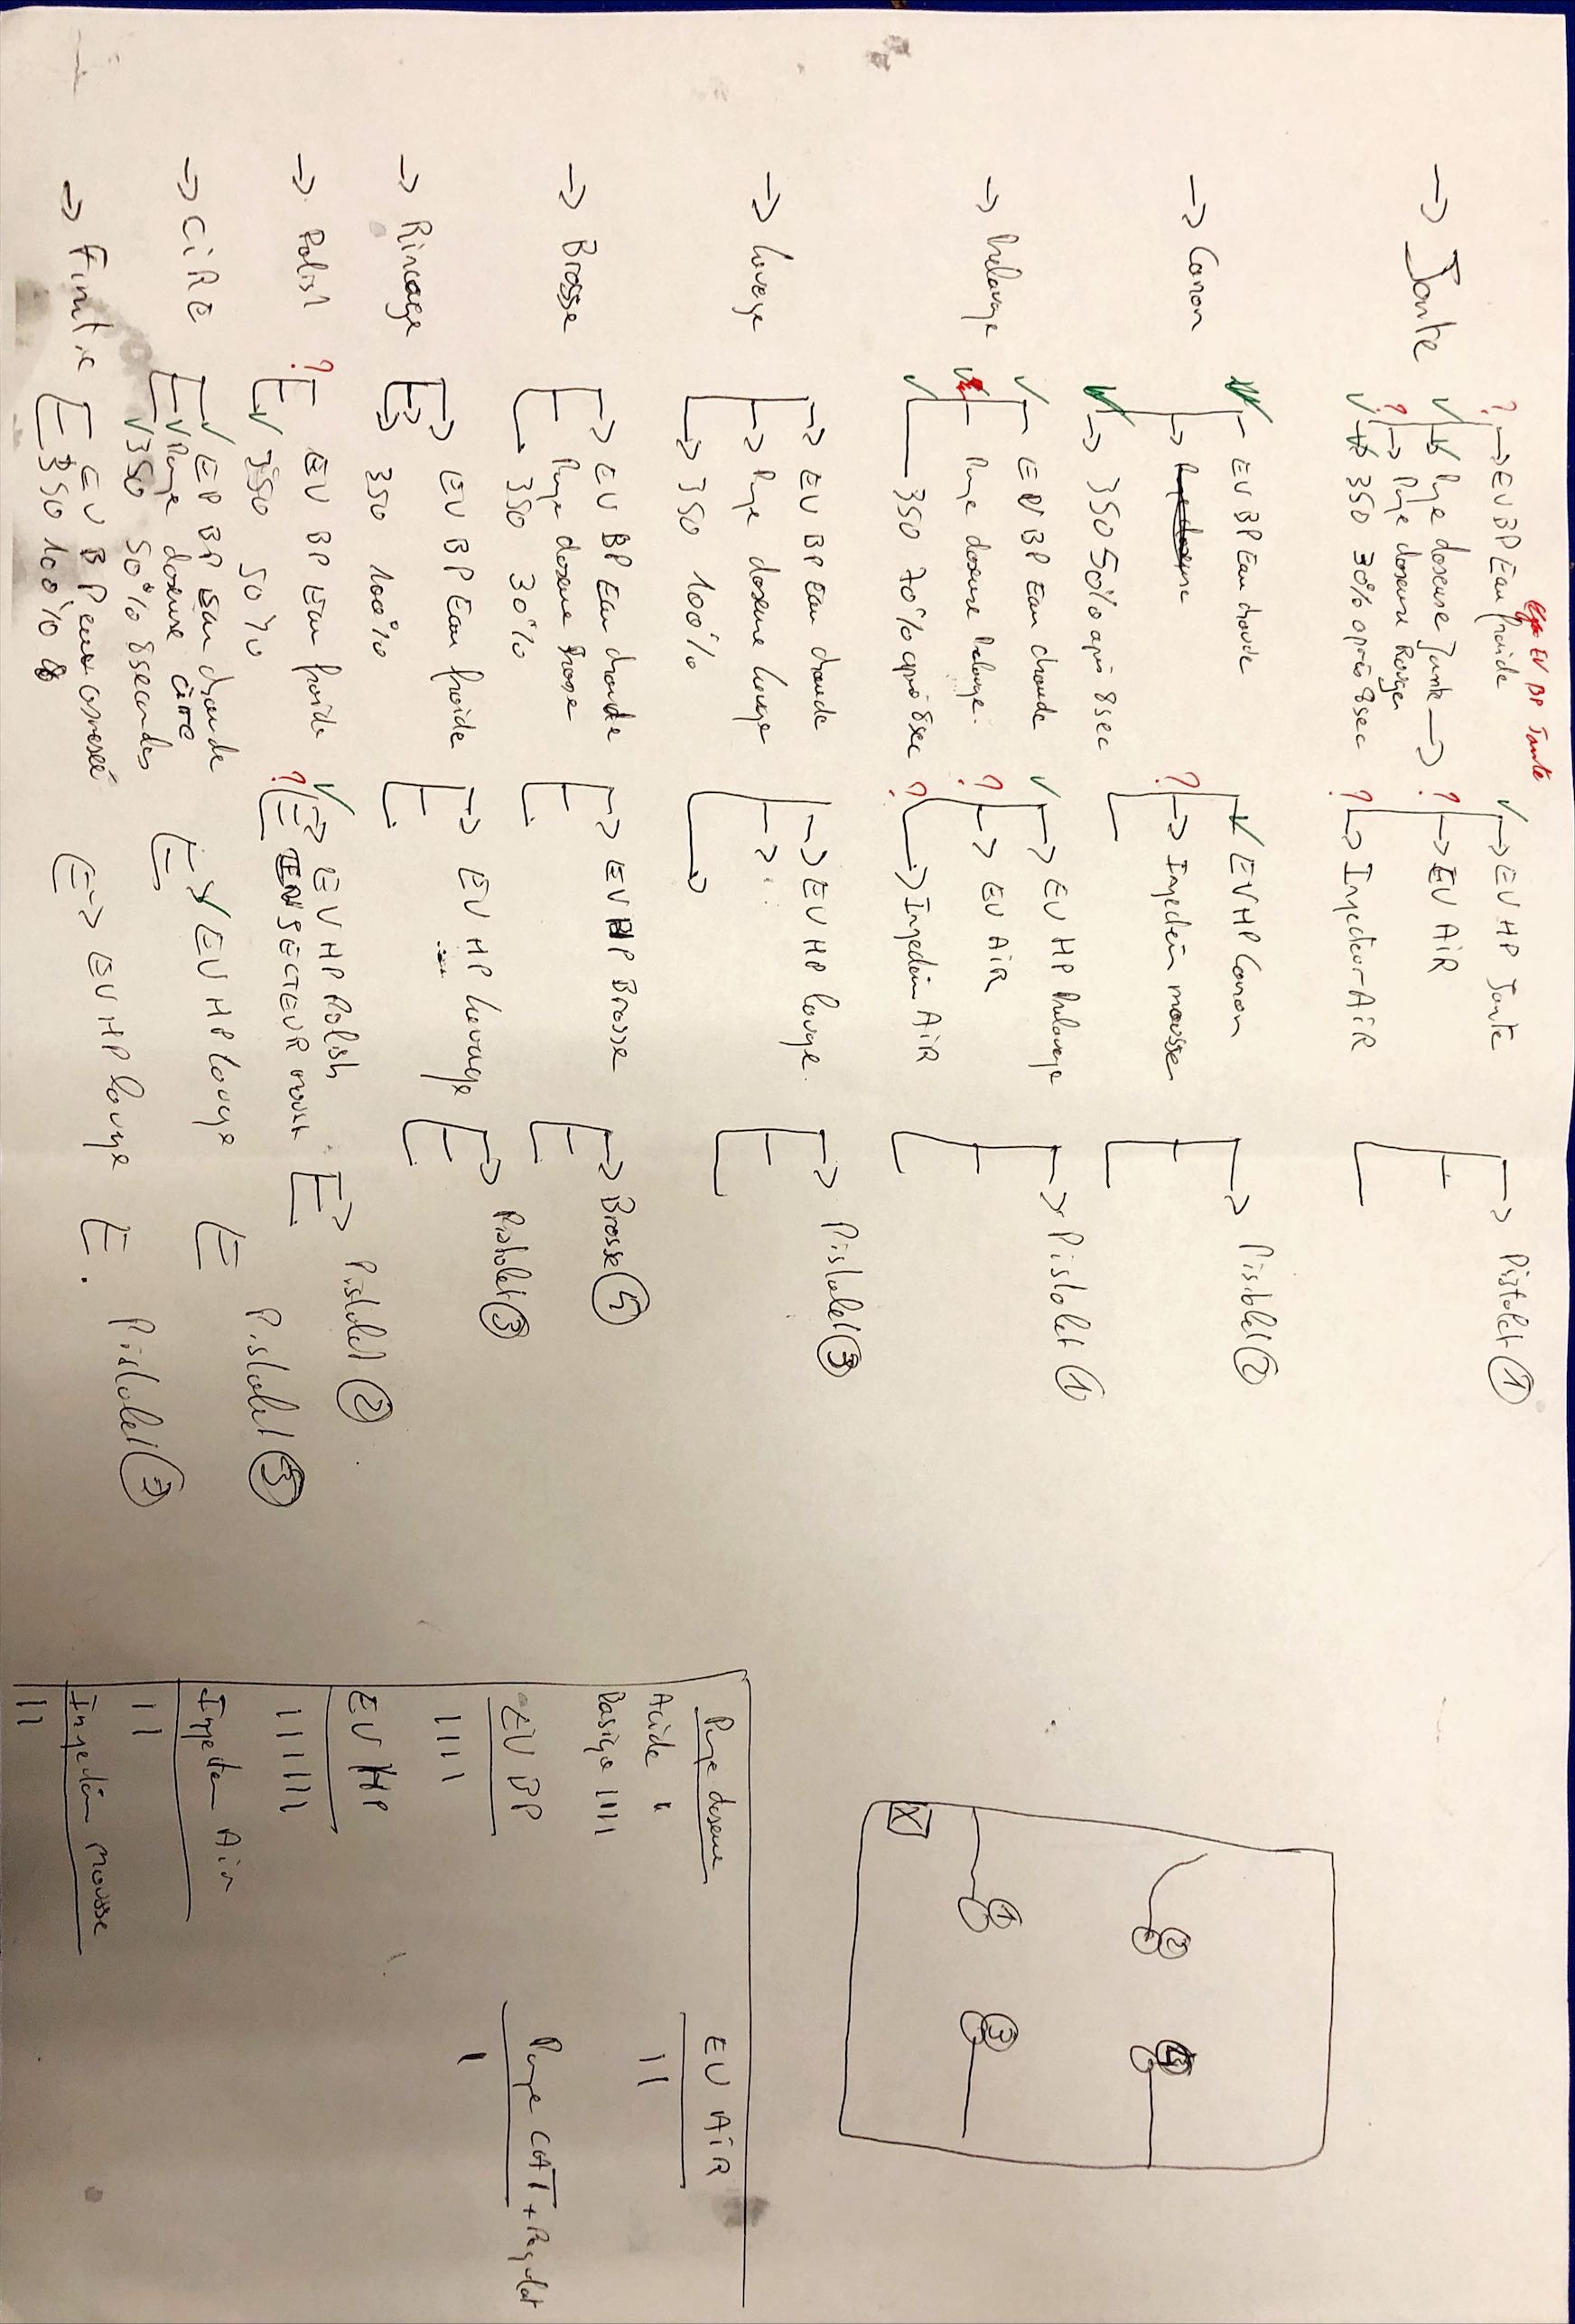 EV BP Jante
→ Jante
? → EV BP Eau froide
Pompe doseuse Jante →
? → Pompe doseuse Rouge
350 30% après 8sec
→ EV HP Jante
? → EV AIR
? → Injecteur AIR
→ Pistolet ①
→ Canon
EV BP Eau chaude
→ 350 50% après 8sec
EV HP Canon
? → Injection mousse
→ Pistolet ②
→ Prelavage
EV BP Eau chaude
Pompe doseuse Prelavage.
350 70% après 8sec
→ EV HP Prelavage
? → EV AIR
? → Injection AIR
→ Pistolet ①
→ Lavage
→ EV BP Eau chaude
→ Pompe doseuse lavage
→ 350 100%
→ EV HP lavage.
→ Pistolet ③
→ Brosse
→ EV BP Eau chaude
Pompe doseuse Brosse
350 30%
→ EV HP Brosse
→ Brosse ④
→ Rincage
→ EV BP Eau froide
350 100%
→ EV HP lavage
→ Pistolet ③
→ Polish
? EV BP Eau froide
350 50%
→ EV HP Polish
? INJECTEUR mousse
→ Pistolet ②
→ CiRE
EV BP Eau chaude
Pompe doseuse cire
350 50% 8secondes
→ EV HP lavage
Pistolet ③
→ Finition
EV BP eau osmosée
350 100%
→ EV HP lavage
Pistolet ③
①
②
③
④
Pompe doseuse
Acide II
Basique IIII
EV BP
IIII
EV HP
IIIIII
Injection Air
II
Injection mousse
II
EV AiR
II
Pompe CAT + Regulat
I